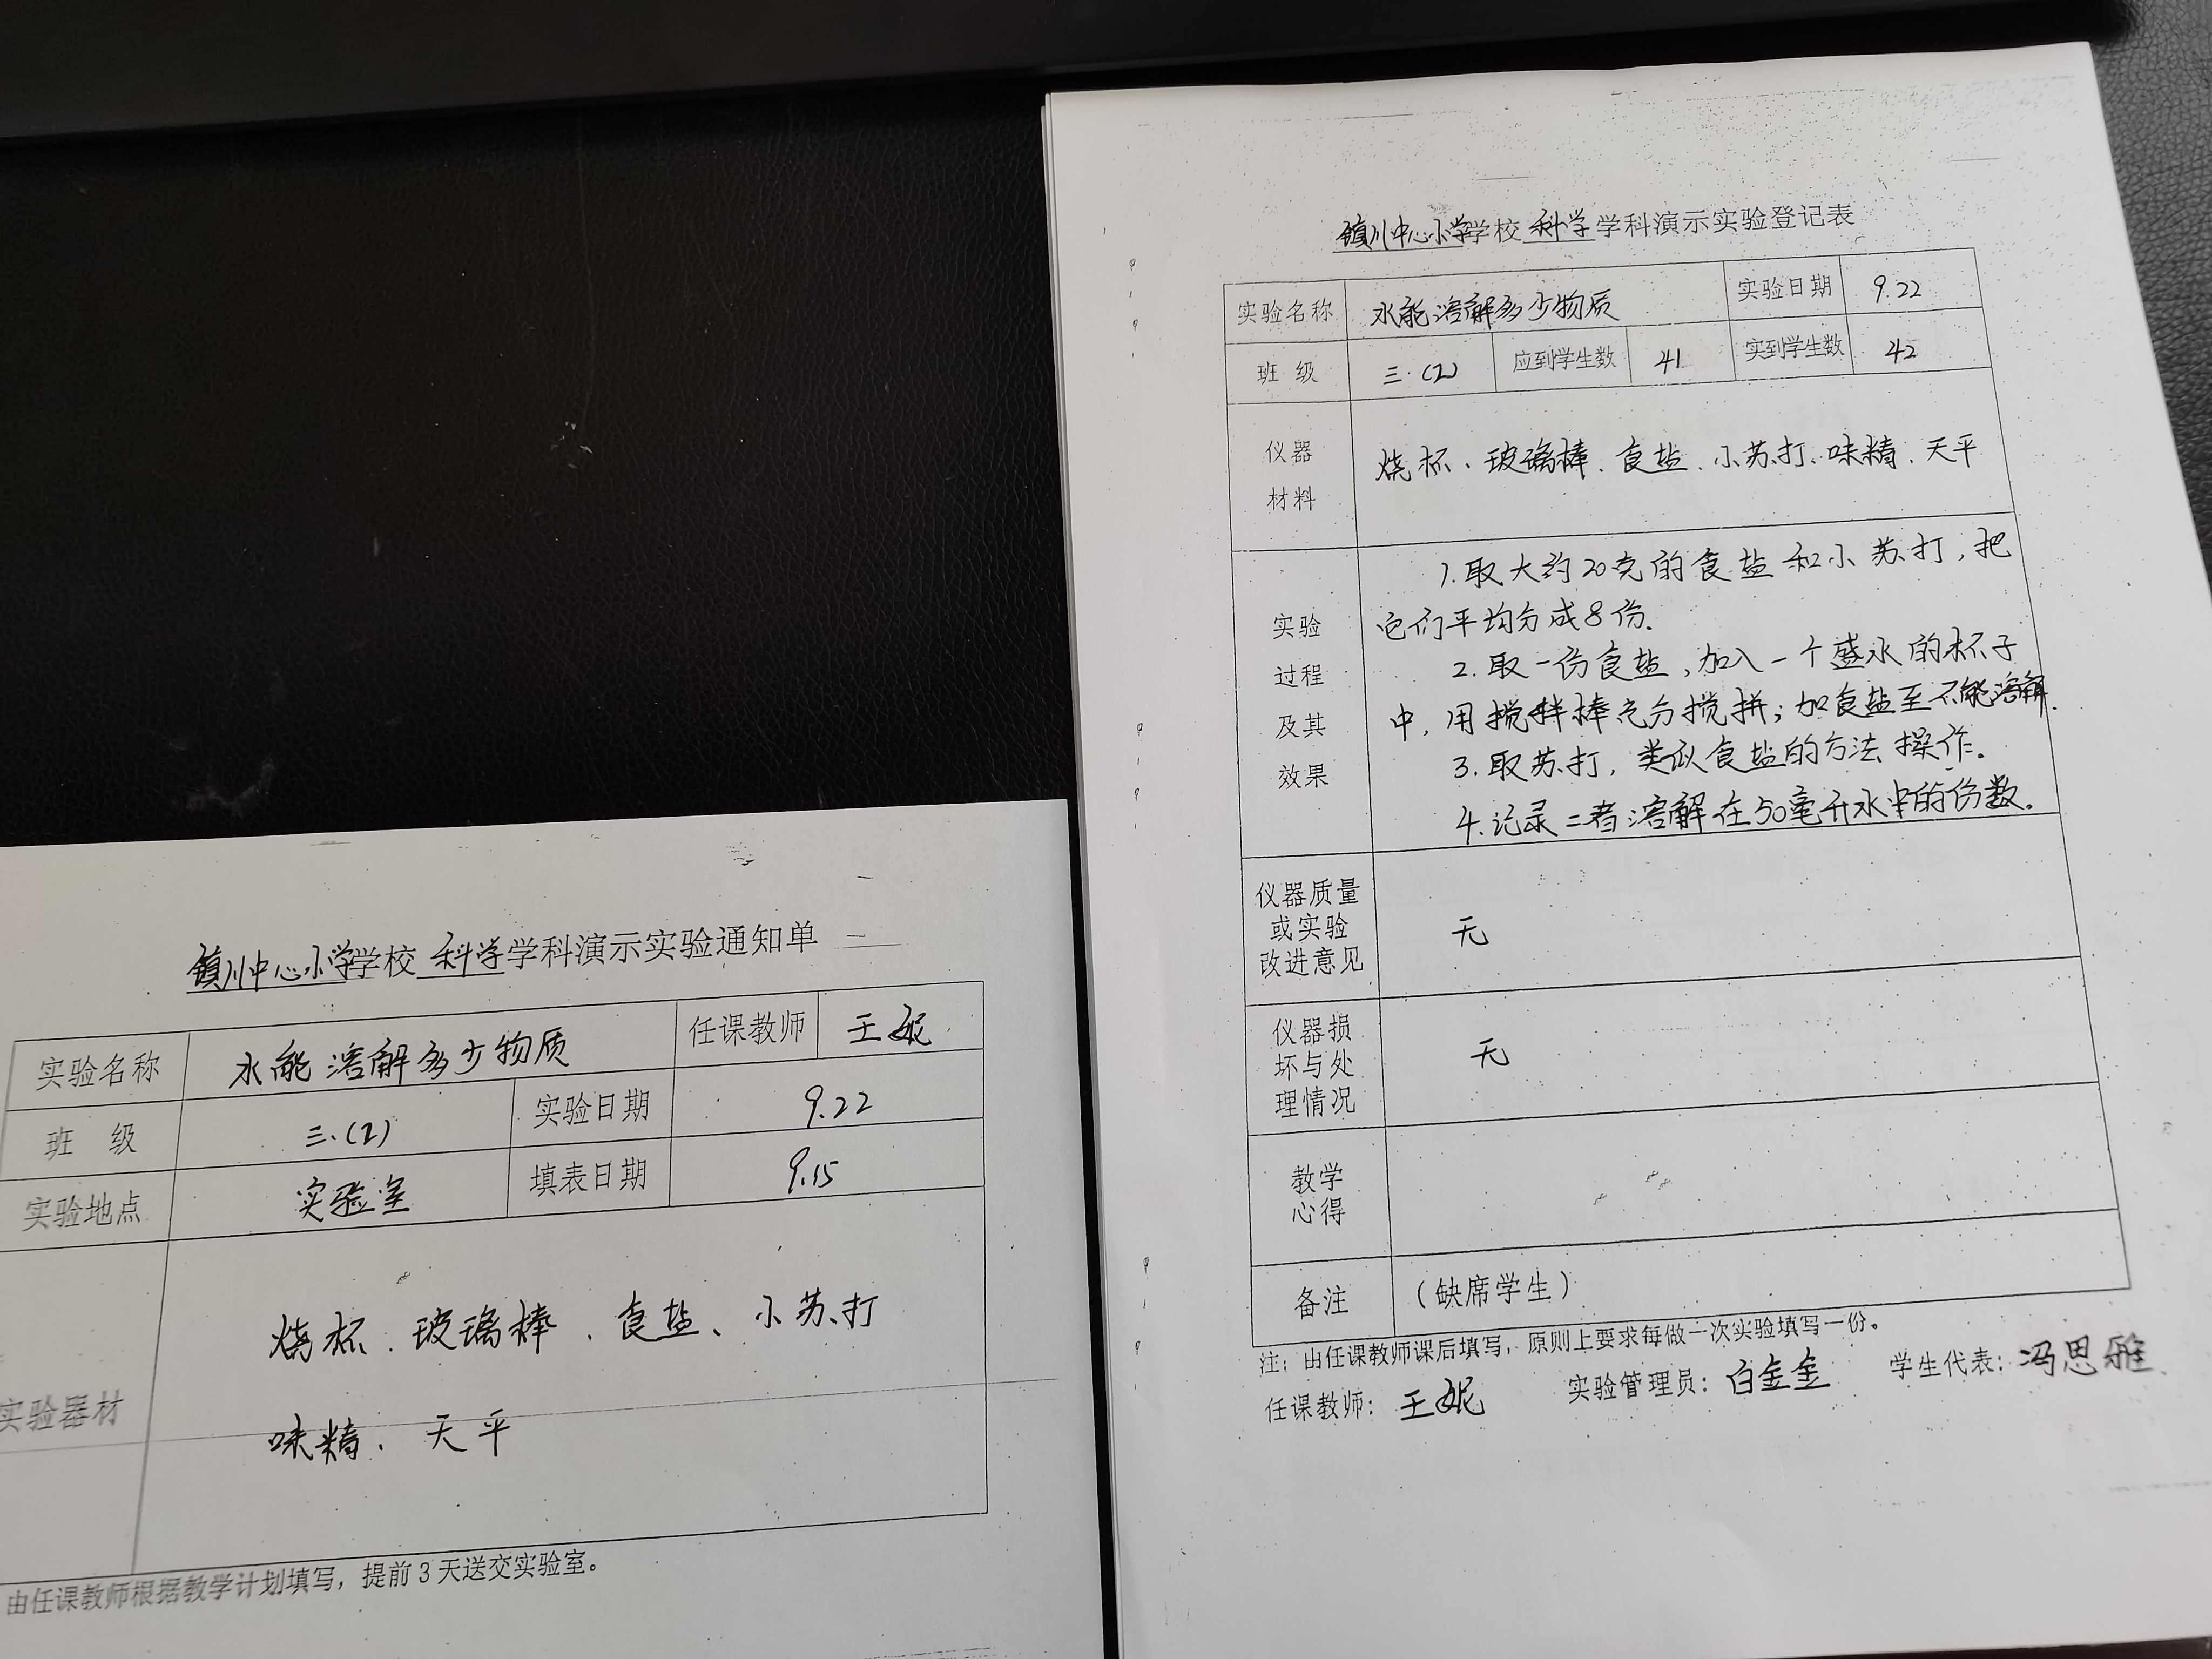 镇川中心小学学校 科学 学科演示实验通知单
实验名称 水能溶解多少物质 任课教师 王妮
班 级 三.(2) 实验日期 9.22
实验地点 实验室 填表日期 9.15
实验器材 烧杯、玻璃棒、食盐、小苏打
味精、天平
由任课教师根据教学计划填写，提前3天送交实验室。
镇川中心小学学校 科学 学科演示实验登记表
实验名称 水能溶解多少物质 实验日期 9.22
班 级 三.(2) 应到学生数 41 实到学生数 42
仪器
材料
烧杯、玻璃棒、食盐、小苏打、味精、天平
实验
过程
及其
效果
1.取大约20克的食盐和小苏打，把
它们平均分成8份.
2.取一份食盐,加入一个盛水的杯子
中，用搅拌棒充分搅拼；加食盐至不能溶解.
3.取苏打，类似食盐的方法操作。
4.记录二者溶解在50毫升水中的份数.
仪器质量
或实验
改进意见
无
仪器损
坏与处
理情况
无
教学
心得
备注 （缺席学生）
注：由任课教师课后填写，原则上要求每做一次实验填写一份。
任课教师：王妮 实验管理员：白金金 学生代表：冯思雅